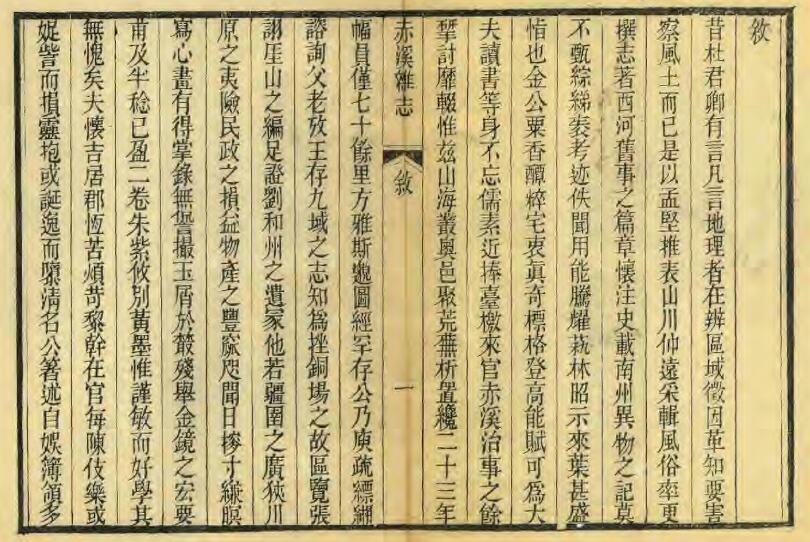 敘
昔杜君卿有言凡言地理者在辨區域徵因革知要害
察風土而已是以孟堅推表山川仲遠采輯風俗率更
撰志著西河舊事之篇章懷注史載南州異物之記莫
不甄綜緗袠考迹佚聞用能騰耀蓺林昭示來葉甚盛
恉也金公粟香醰粹宅衷眞奇標格登高能賦可爲大
夫讀書等身不忘儒素近捧臺檄來官赤溪治事之餘
揅討靡輟惟玆山海叢奧邑聚荒蕪析置纔二十三年
赤溪雜志 敘 一
幅員僅七十餘里方雅斯邈圖經罕存公乃庾疏縹緗
諮詢父老攷王存九域之志知爲挫銅場之故區覽張
詡厓山之編足證劉和州之遺冢他若疆圉之廣狹川
原之夷險民政之損益物產之豐窳咫聞日摻寸縑暝
寫心畫有得掌錄無訾撮玉屑於叢殘舉金鏡之宏要
甫及半稔已盈二卷朱紫攸別黃墨惟謹敏而好學其
無愧矣夫懷吉居郡恆苦煩苛黎幹在官每陳伎樂或
娖訾而損靈抱或誕逸而隳淸名公箸述自娛簿領多